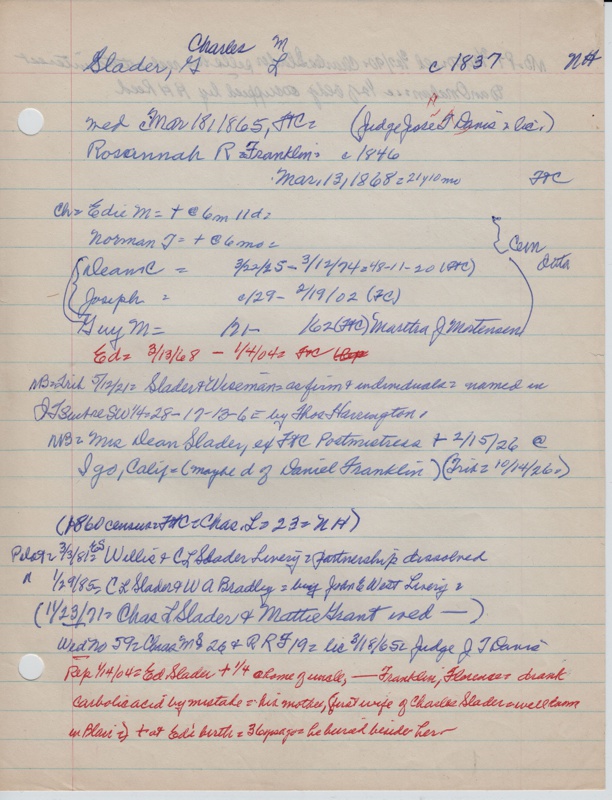 Charles M
Slader, G L c 1837 NH
med c Mar 18, 1865, FTC = (Judge Jose T Davis = lic.)
Rosannah R = Franklin = c 1846
Mar, 13, 1868 = 21y10mo FTC
Ch = Edie M = + @ 6m 11d =
Norman T = + @ 6mo = Cem
Dean C = 3/22/25 - 3/12/74 = 48-11-20 (FTC) Data
Joseph = c/29 - 2/19/02 (FC)
Guy M = /62 (FTC) Martha J Mortensen
Ed = 3/13/68 - 1/4/04 = FTC
NB = Trib 5/12/21 = Slader & Wiseman = as firm & individuals = named in
SW 1/4 = 28-17-13-6 = by Thos Harrington.
NB = Mrs Dean Slader, ex FTC Postmistress + 2/15/26 @
Igo, Calif = (maybe d of Daniel Franklin) (Trib = 10/14/26 =)
(1860 census = FTC = Chas. L = 23 = NH)
Pilot = 3/3/81 = Willis & CL Slader Livery = partnership dissolved
" 1/29/85, CL Slader & WA Bradley = buy John E West Livery =
(11/23/71 = Chas L Slader & Mattie Grant wed —)
Wed No 59 = Chas M S 26 & R R F 19 = lic 3/18/65 = Judge J T Davis
Rep 1/4/04 = Ed Slader + 1/4 @ home of uncle, — Franklin, Florence = drank
carbolic acid by mistake = his mother, (first wife of Charles Slader = well known
in Blair =) + at Ed's birth = 36 yrs ago = he buried beside her =